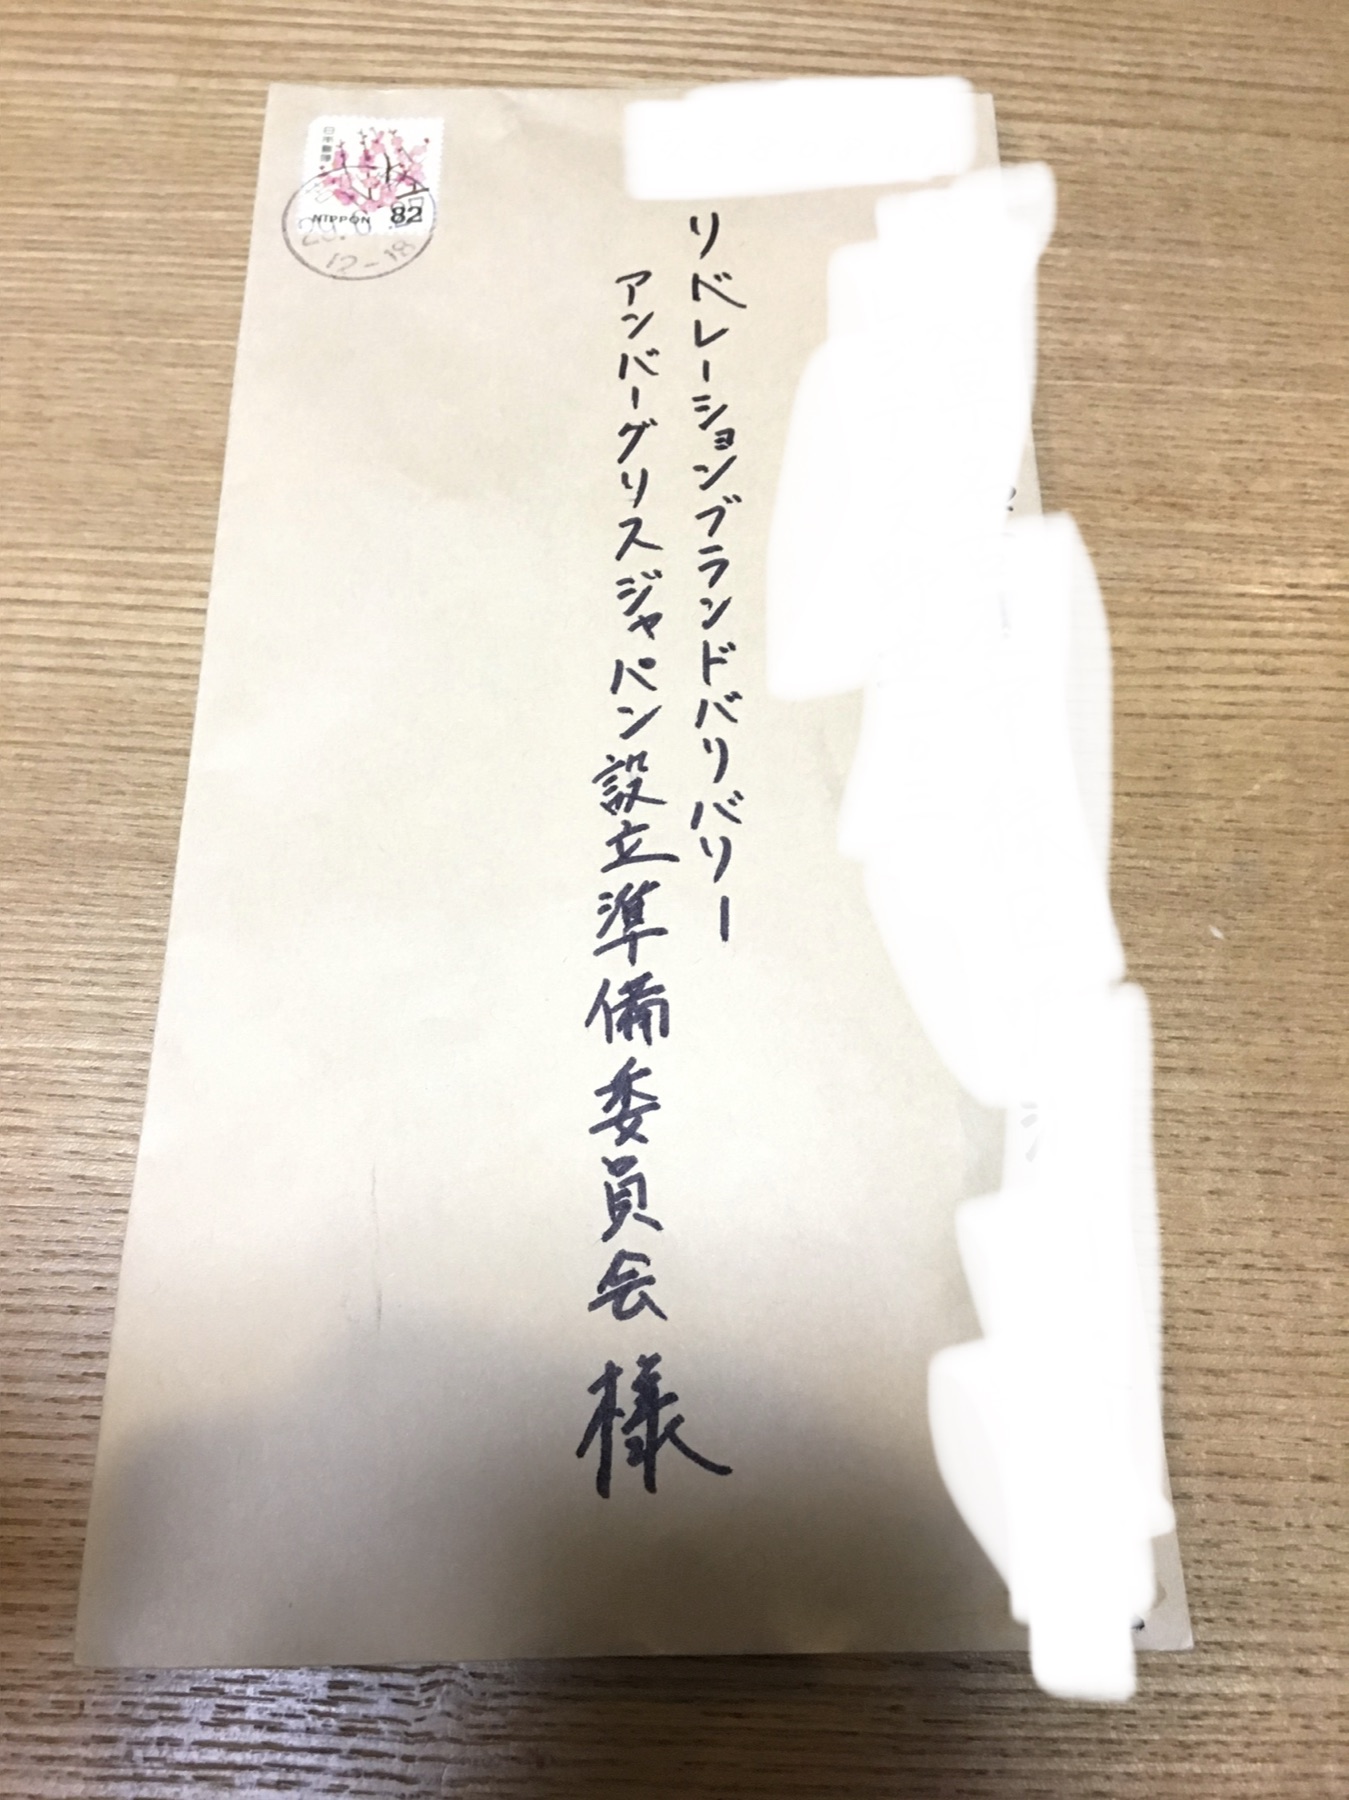 リベレーションブランドバリバリー
アンバーグリスジャパン設立準備委員会 様
日本郵便
NIPPON 82
12-18